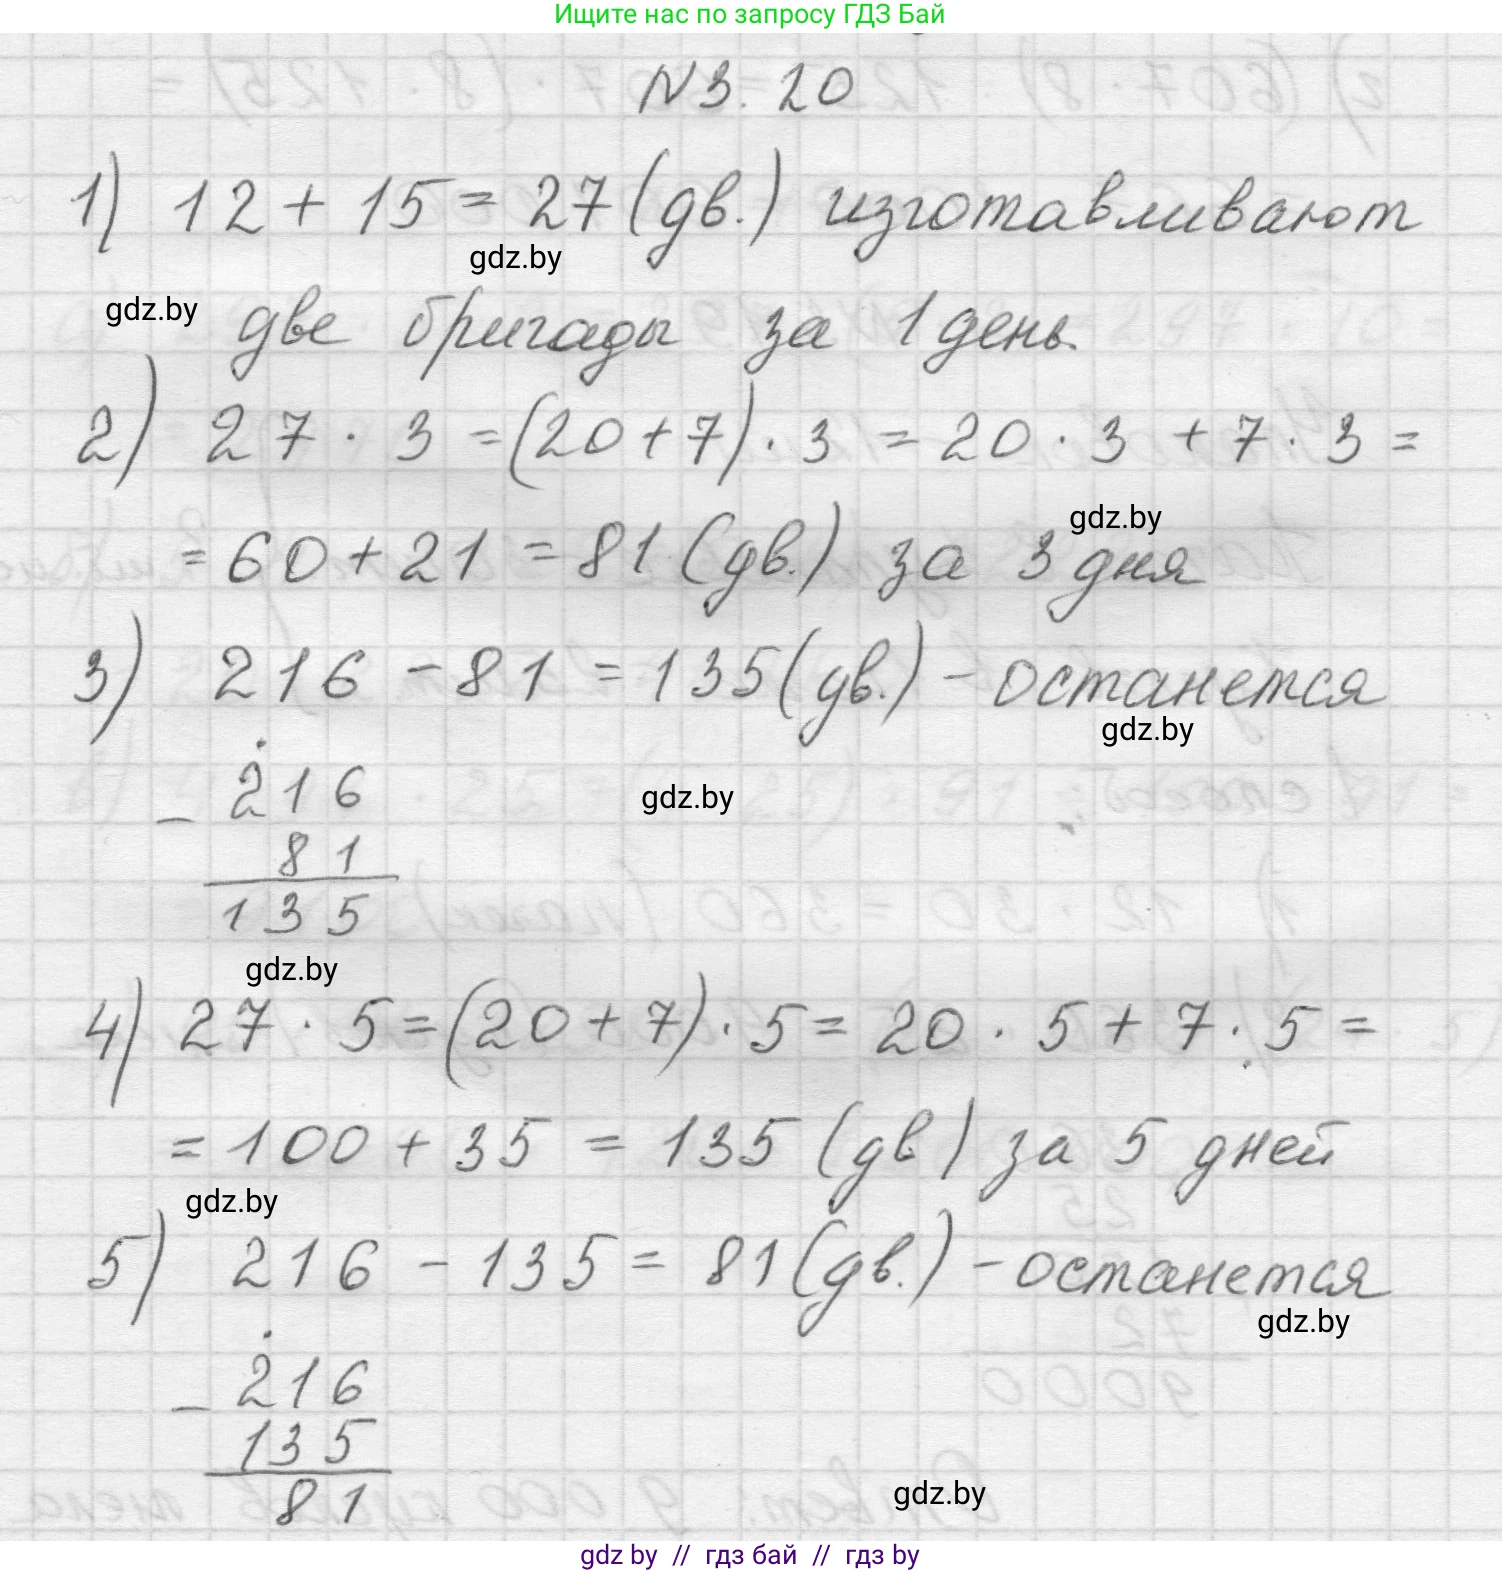 Ищите нас по запросу ГДЗ Бай
N3. 20
1) 12 + 15 = 27 (дв.) изготавливают
gdz.by
gdz.by
две бригады за 1 день.
2) 27 · 3 = (20 + 7) · 3 = 20 · 3 + 7 · 3 =
gdz.by
= 60 + 21 = 81 (дв.) за 3 дня
3) 216 - 81 = 135 (дв.) - останется
gdz.by
- 216
gdz.by
81
135
gdz.by
4) 27 · 5 = (20 + 7) · 5 = 20 · 5 + 7 · 5 =
= 100 + 35 = 135 (дв) за 5 дней
gdz.by
5) 216 - 135 = 81 (дв.) - останется
gdz.by
- 216
135
81
gdz.by
gdz by // гдз бай // гдз by